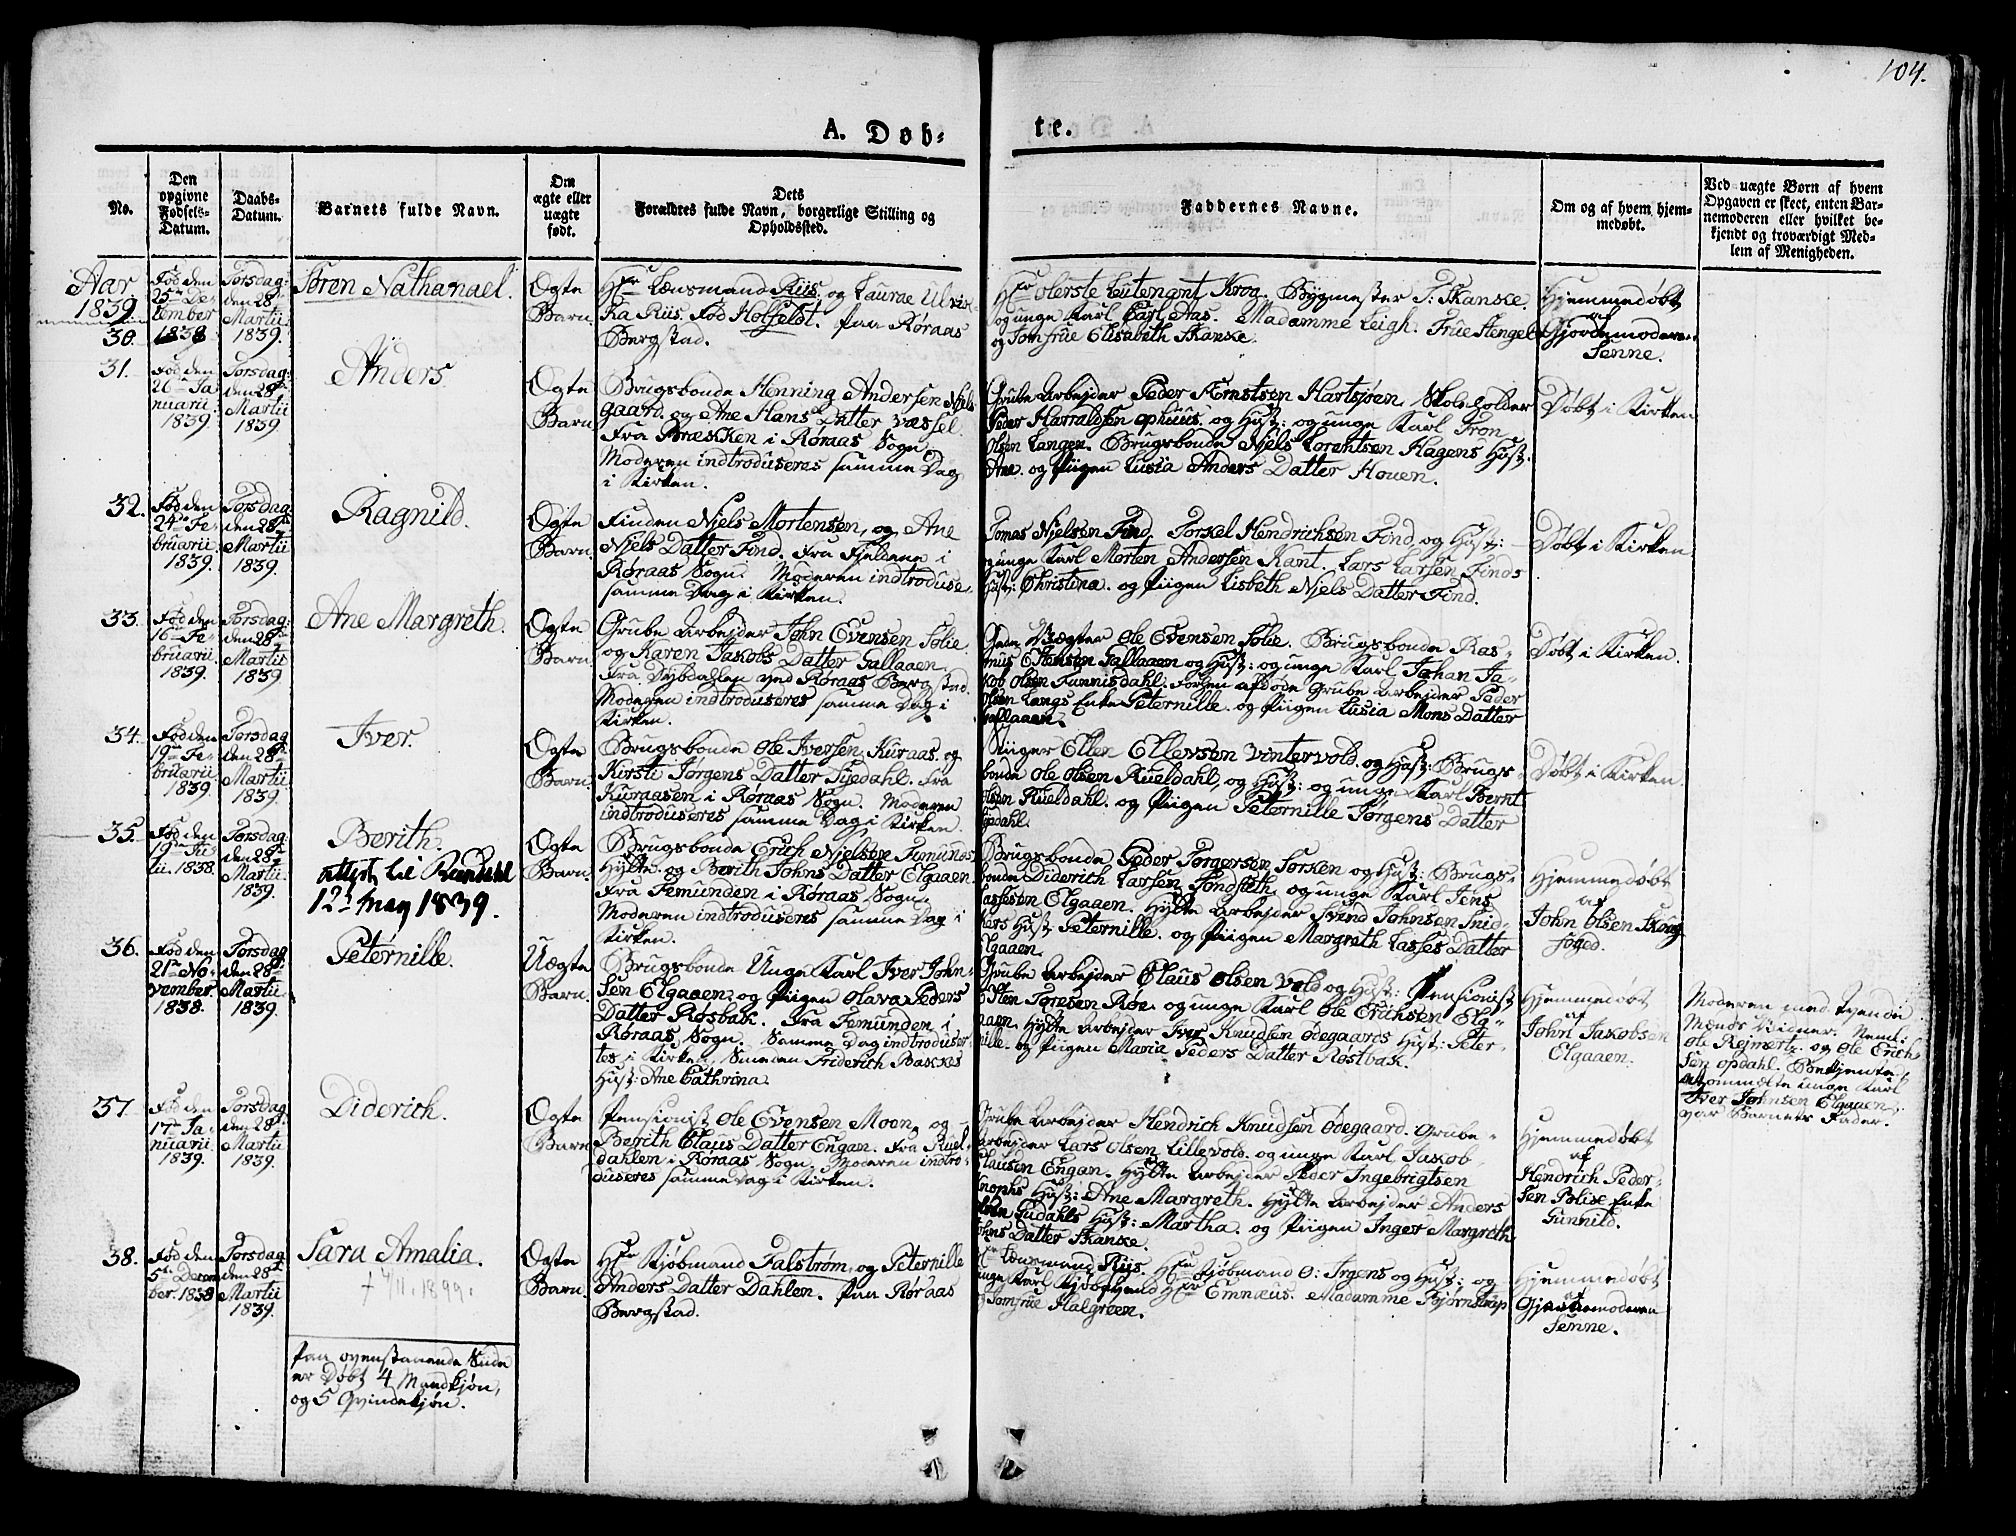 104.
A. Døb-
te.
No.
Den
opgivne
Fødsels-
Datum.
Daabs-
Datum.
Barnets fulde Navn.
Om
ægte eller
uægte
født.
Dets
Forældres fulde Navn, borgerlige Stilling og
Opholdssted.
Faddernes Navne.
Om og af hvem hjem-
medøbt.
Ved uægte Børn af hvem
Opgaven er skeet, enten Bar-
nemoderen eller hvilket be-
kjendt og troværdigt Med-
lem af Menigheden.
Aar
1839
30.
Fød den
25de De-
cember
1838
Torsdag
den 28de
Martii
1839.
Søren Nathanael.
Ægte
Barn.
Hr Lænsmand Riis, og Laurae Ulriv-
ka Riis. Fød Holfeldt. paa Røraas
Bergstad.
Hr Oberste Leutenant Krog. Bygmester J: Skanske
og unge Karl Carl Aas. Madamme Leigh. Frue Stengel
og Jomfrue Elisabeth Skanske.
Hjemmedøbt
af
Gjordemoderen
Senne.
31.
Fød den
26de Ja
nuarii
1839.
Torsdag
den 28de
Martii
1839.
Anders.
Ægte
Barn.
Brugsbonde Henning Andersen Njels
gaard. og Ane Hans Datter Vessel.
Fra Brækken i Røraas Sogn.
Moderen indtroduseres samme Dag
i Kirken.
Grube Arbejder Peder Ernstsen Hartsjøen. Skoleholder
Peder Harraldsen Ophuus. og Hust: og unge Karl Tron
Olsen Langen. Brugsbonde Njels Lorentsen Hagens Hust:
Ane. og Piigen Lusia Anders Datter Hoven.
Døbt i Kirken
32.
Fød den
24de Fe-
bruarii
1839.
Torsdag
den 28de
Martii
1839.
Ragnild.
Ægte
Barn.
Finden Njels Mortensen, og Ane
Njels Datter Find. Fra Fjeldene i
Røraas Sogn. Moderen indtroduse.
samme Dag i Kirken.
Tomas Njelsen Find. Torkel Hendrichsen Find, og Hust:
og unge Karl Morten Andersen Kant. Lars Larsen Finds
Hust: Christina. og Piigen Lisbeth Njels Datter Find.
Døbt i Kirken
33.
Fød den
16de Fe-
bruarii
1839.
Torsdag
den 28de
Martii
1839.
Ane Margreth.
Ægte
Barn.
Grube Arbejder John Evensen Solie.
og Karen Jakobs Datter Gallaaen.
Fra Dybdallen ved Røraas Bergstad.
Moderen indtroduseres samme Dag i
Kirken.
Vægter Ole Evensen Solie. Brugsbonde Ras-
mus Estensen Gallaaen og Hust: og unge Karl Johan Ja-
kob Olsen Funnisdahl. afdøde Grube Arbejder Peder
Olsen Langs Enke Peternille. og Piigen Lusia Mons Datter
Gallaaen.
Døbt i Kirken.
34.
Fød den
19de Fe-
bruarii
1839.
Torsdag
den 28de
Martii
1839.
Iver.
Ægte
Barn.
Brugsbonde Ole Iversen Kuraas. og
Kirsti Jørgens Datter Sysedahl. Fra
Kuraasen i Røraas Sogn. Moderen
indtroduseres samme Dag i Kirken.
Ellen Ellevsen Vintervold. og Hust: Brugs
bonde Ole Olsen Rueldahl, og Hust: og unge Karl Bernt
Olsen Rueldahl. og Piigen Peternille Jørgens Datter
Døbt i Kirken.
35.
Fød den
19de
1838.
Torsdag
den 28de
Martii
1839.
Berith.
attest til Rendahl
12t May 1839.
Ægte
Barn.
Brugsbonde Erich Njelsen Femunds
Hytte. og Berith Johns Datter Elgaaen.
Fra Femunden i Røraas Sogn.
Moderen indtroduseres samme Dag i
Kirken.
Brugsbonde Peder Torgersen Sorken og Hust: Brugs-
bonde Diderich Larsen Sondseth. og unge Karl Jens
Lassesen Elgaaen. Hytte Arbejder Svend Johnsen Snid-
kers Hust Peternille. og Piigen Margreth Lasses Datter
Elgaaen.
Hjemmedøbt
af
John Olsen Skoug
foged.
36.
Fød den
21de No-
vember.
1838.
Torsdag
den 28de
Martii
1839.
Peternille.
Uægte
Barn.
Brugsbonde Unge Karl Iver John-
sen Elgaaen, og Piigen Olava Peders
Datter Røsbak. Fra Femunden i
Røraas Sogn. Samme Dag indtroduser-
tes i Kirken, Smeden Friderich Bakkes
Hust: Ane Cathrina.
Grube Arbejder Claus Olsen Vold og Hust: Pensionist
Esten Toresen Røe. og unge Karl Ole Erichsen Elg-
aaen. Hytte Arbejder Iver Knudsen Ødegaards Hust: Peter-
nille. og Piigen Maria Peders Datter Rostbak.
Hjemmedøbt
af
John Jakobsen
Elgaaen.
Moderen med tvende
Mænds Vidner. Neml:
Ole Rejmertz. og Ole Erich
sen Opdahl. Bekjente
at ommælte unge Karl
Iver Johnsen Elgaaen,
var Barnets Fader.
37.
Fød den
17de Ja-
nuarii
1839.
Torsdag
den 28de
Martii
1839.
Diderich.
Ægte
Barn.
Pensionist Ole Evensen Moen, og
Berith Claus Datter Engan. Fra Ruel-
dahlen i Røraas Sogn. Moderen indtro-
duseres samme Dag i Kirken.
Grube Arbejder Hendrich Knudsen Ødegaard. Grube-
arbejder Lars Olsen Lillevold. og unge Karl Jakob
Clausen Engan. Hytte Arbejder Peder Ingebrigtsen
Knophs Hust: Ane Margreth. Hytte Arbejder Anders
Olsen Gudahls Hust: Martha. og Piigen Inger Margreth
Johns Datter Skanske.
Hjemmedøbt
af
Hendrich Peder-
sen Bolise Enke
Gunnild.
38.
Fød den
5te Decem
ber. 1838
Torsdag
den 28de
Martii
1839.
Sara Amalia.
+ 4/11. 1899.
Ægte
Barn.
Hr Kjøbmand Falstrøm, og Peternille
Anders Datter Dahlen. paa Røraas
Bergstad.
Hr Lænsmand Riis. Hr Kjøbmand O: Irgens og Hust: og
unge Karl Kjøbshend Hr Emnæus. Madamme Bjørnstrup
og Jomfrue Halgreen.
Hjemmedøbt
af
Gjordemoderen
Senne.
Paa ovenstaaende Side
er Døbt 4 Mandkjøn,
og 5 Qvindekjøn.